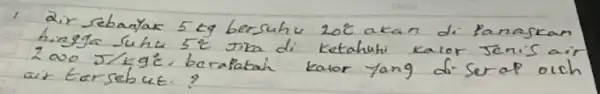 1 air sebanyak 5 kg bersuhu 20℃ akan di panaskan
hingga suhu 5℃ Jika di ketahuhi kalor Jenis air
2000 J/kg℃, berapakah kalor yang di serap oleh
air tersebut. ?